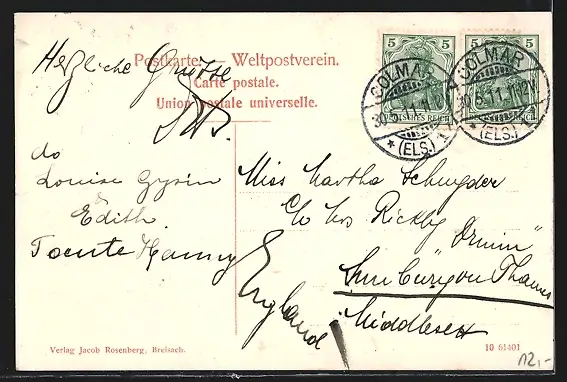 Postkarte. Weltpostverein.
Carte postale.
Union postale universelle.
Herzliche Grüsse
do
Louise Gysin
Edith
Tante Fanny
5 5
5 5
DEUTSCHES REICH
COLMAR
(ELS.)
30.5.11.11-12
COLMAR
(ELS.)
30.5.11.11-12
Miss Martha Schnyder
C/o Mrs Rickly
Sunbury on Thames
Middlesex
England
Verlag Jacob Rosenberg, Breisach.
10 61401
12,-